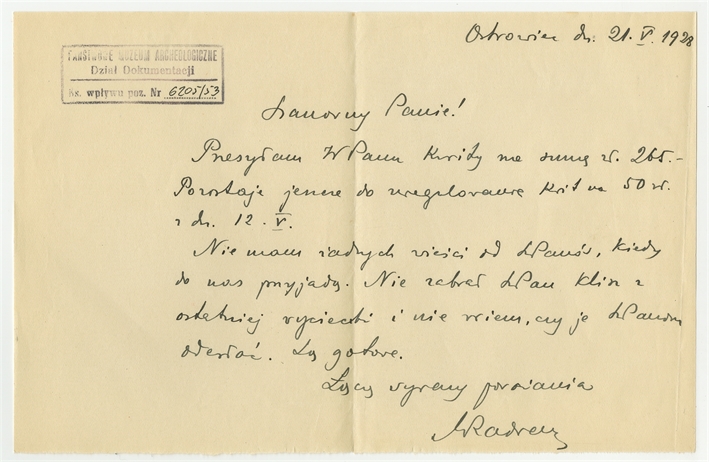 Ostrowiec dn. 21.V.1928
PAŃSTWOWE MUZEUM ARCHEOLOGICZNE
Dział Dokumentacji
Ks. wpływu poz. Nr 6205/53
Szanowny Panie!
Przesyłam WPanu kwity na sumę zł. 265.-
Pozostaje jeszcze do uregulowania kwit na 50 zł.
z dn. 12.V.
Nie mam żadnych wieści od WPanów, kiedy
do nas przyjadą. Nie zabrał WPan klisz z
ostatniej wycieczki i nie wiem, czy je WPanom
odesłać. Są gotowe.
Łączę wyrazy poważania